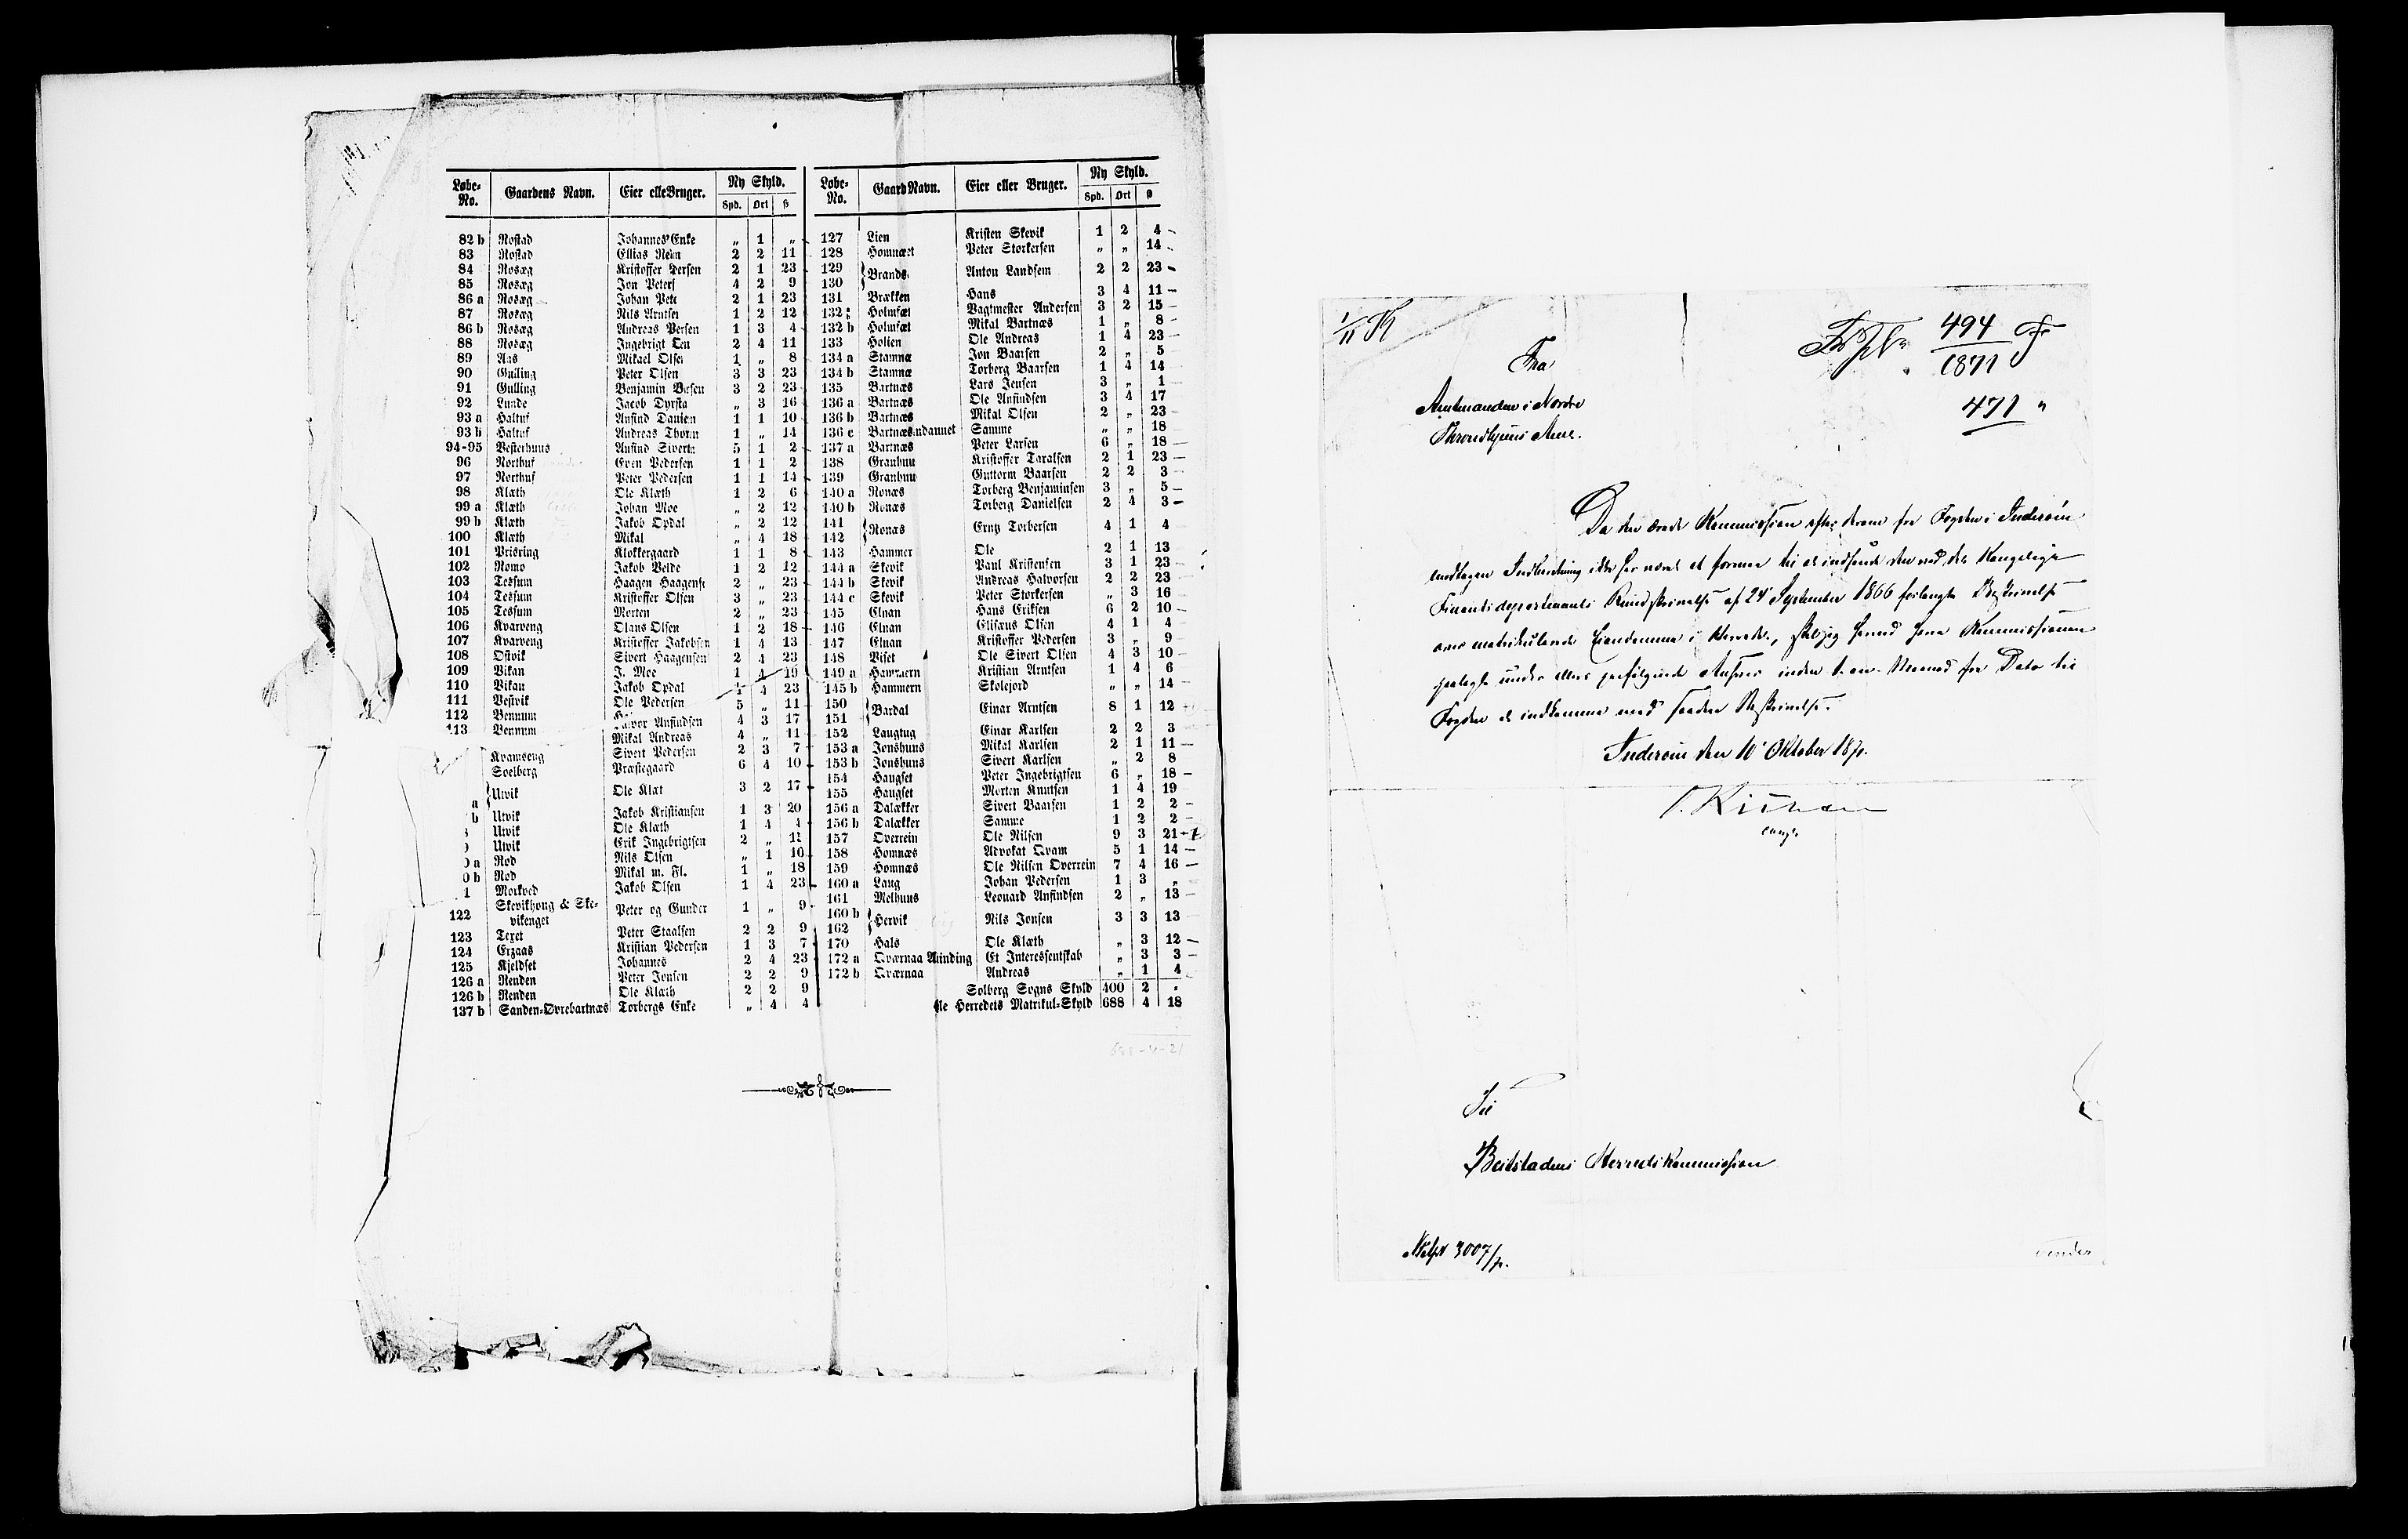 Løbe-No. Gaardens Navn. Eier elleBruger. Ny Skyld. Spd. Ort ß
82 b Rostad Johannes Enke " 1 "
83 Rostad Ellias Rein 2 2 11
84 Rosæg Kristoffer dersen 2 1 23
85 Rosæg Jon Peters 4 2 9
86 a Rosæg Johan Pete 2 1 23
87 Rosæg Nils Arntsen 1 2 12
86 b Rosæg Andreas Persen 1 3 4
88 Rosæg Ingebrigt 2 4 11
89 Aas Mikael Olsen 1 " 8
90 Gulling Peter Olsen 3 3 23
91 Gulling Benjamin 3 2 23
92 Lunde Jacob Dyrsta " 3 16
93 a Haltuf Anfind Danien 1 1 10
93 b Haltuf Andreas 1 " 14
94-95 Vesterhuus Anfind Siverts 5 1 2
96 Northuf Even Pedersen 1 1 2
97 Northuf Peter Pedersen 1 1 14
98 Klæth Ole Klæth 1 2 6
99 a Klæth Johan Moe " 2 12
99 b Klæth Jakob Opdal " 2 12
100 Klæth Mikal " 4 18
101 Prisring Klokkergaard 1 1 8
102 Romo Jakob Velde 1 2 12
103 Tessum Haagen Haagens 2 " 23
104 Tessum Kristoffer Olsen 3 " 23
105 Tessum Morten 2 " 23
106 Kvarveng Olaus Olsen 1 2 18
107 Kvarveng Kristoffer Jakobsen 1 4 13
108 Ostvik Sivert Haagensen 2 4 23
109 Vikan J. Moe 1 4 19
110 Vikan Jakob Opdal 4 23
111 Vestvik Ole Pedersen 5 " 11
112 Bennum Anfindsen 4 3 17
113 Bennum Mikal Andreas 4 " 11
Kvamseng Sivert Pedersen 2 3 7
Soelberg Præstegaard 6 4 10
Utvik Ole Klæt 3 2 17
a
b Utvik Jakob Kristiansen 1 3 20
Utvik Ole Klæth 1 4 4
Utvik Erik Ingebrigtsen 2 "
a Rod Nils Olsen " 1 10
0 b Rod Mikal m. Fl. 1 " 18
1 Morkved Jakob Olsen 1 4 23
122 Skevikhong & Ske-
vikenget Peter og Gunder 1 " 9
123 Texet Peter Staalsen 2 2 9
124 Erzaas Kristian Pedersen 1 3 7
125 Kjeldset Johannes 2 4 23
126 a Renden Peter Jonsen 2 2 9
126 b Renden Ole Klæth 2 2 9
137 b Sanden-Øvrebartnæs Torbergs Enke " 4 4
Løbe-No. Gaard Navn. Eier eller Bruger. Ny Skyld. Spd. Ort ß
127 Lien Kristen Skevik 1 2 4
128 Homnæst Peter Storkersen " " 14
129
130 Brands Anton Landsem 2 2 23
131 Brækken Hans 3 4 11
132 Holmsæt Vagtmester Andersen 3 2 15
132 b Holmsæt Mikal Bartnæs 1 " 8
133 Holien Ole Andreas 1 4 23
134 a Stamnæ Jon Baarsen 2 " 5
134 b Stamnæ Torberg Baarsen 1 4 14
135 Bartnæs Lars Jensen 3 " 1
136 a Bartnæs Ole Anfindsen 3 4 17
136 b Bartnæs Mikal Olsen 2 " 23
136 c Bartnæs Samme " " 18
137 a Bartnæs Peter Larsen 6 " 18
138 Granhuu Kristoffer Taralsen 2 1 23
139 Granhuu Guttorm Baarsen 2 2 3
140 a Ronæs Torberg Benjaminsen 3 " 5
140 b Ronæs Torberg Danielsen 2 4 3
141
142 Ronæs Erntz Torbersen 4 1 4
143 Hammer Ole 2 1 13
144 a Skevik Paul Kristensen 3 1 23
144 b Skevik Andreas Halvorsen 2 2 23
144 c Skevik Peter Storkersen " 3 16
145 Elnan Hans Eriksen 6 2 10
146 Elnan Elisæus Olsen 4 1 4
147 Elnan Kristoffer Pedersen 3 " 9
148 Viset Ole Sivert Olsen 4 3 10
149 a Hammern Kristian Arntsen 1 4 6
145 b Hammern Skolejord " " 14
150
151 Bardal Einar Arntsen 8 1 12
152 Laugtug Einar Karlsen 2 2 3
153 a Jonshuus Mikal Karlsen 2 1 11
153 b Jonshuus Sivert Karlsen " 2 8
154 Haugset Peter Ingebrigtsen 6 " 18
155 Haugset Morten Knutsen 1 4 19
156 a Dalækker Sivert Baarsen 1 2 2
156 b Dalækker Samme 1 2 2
157 Overrein Ole Nilsen 9 3 21
158 Homnæs Advokat Qvam 5 1 14
159 Homnæs Ole Nilsen Overrein 7 4 16
160 a Laug Johan Pedersen 1 3 "
161 Melhuus Leonard Anfindsen 2 " 13
160 b
162 Hervik Nils Jonsen 3 3 13
170 Hals Ole Klæth " 3 12
172 a Qværnaa Et Interessentskab " 3 3
172 b Qværnaa Andreas " 1 4
Solberg Sogns Skyld 400 2 "
Herredets Matrikul-Skyld 688 4 18
1/11 K
494
1871
471 "
Fra
Amtmanden i Nordre
Throndhjems Amt.
Da den ærede Kommission efter derom fra Fogden i Inderøen
indtagen Indberetning ikke har været at formaa til at indsende den ved det Kongelige
Finantsdepartements Rundskrivelse af 24 September 1866 forlangte Beskrivelse
over matrikulerede Eiendomme i Herredet, skal jeg herved have Kommissionen
paalagt under ellers paafølgende Ansvar inden Maaned fra Dato til
Fogden at indkomme med saadan Beskrivelse.
Inderøen den 10 Oktober 1870.
Til
Beitstadens Herredskommission
3007/70.
vender